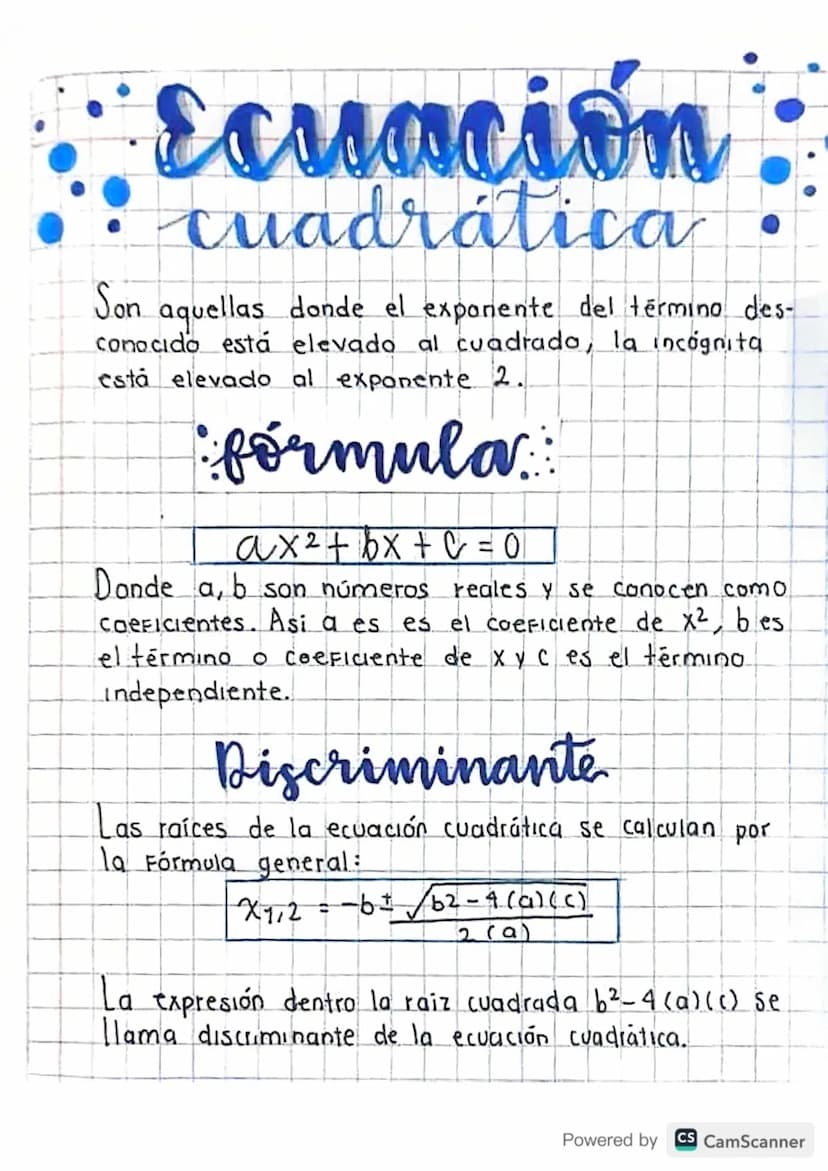 Ecuación
cuadrática
Son aquellas donde el exponente del término des-
conocido está elevado al cuadrado, la incógnita
está elevado al exponente 2.
fórmula
ax²+ bx + c = 0
Donde a, b son números reales y se conocen como
coeficientes. Asi a es es el coeficiente de x², b es
el término o coeficiente de x y c es el término
independiente.
Discriminante
Las raíces de la ecuación cuadrática se calculan por
la Fórmula general:
x1,2 = -b ± √b2 - 4(a)(c)
2(a)
La expresión dentro la raiz cuadrada b²-4(a)(c) se
llama discriminante de la ecuación cuadrática.
Powered by CS CamScanner